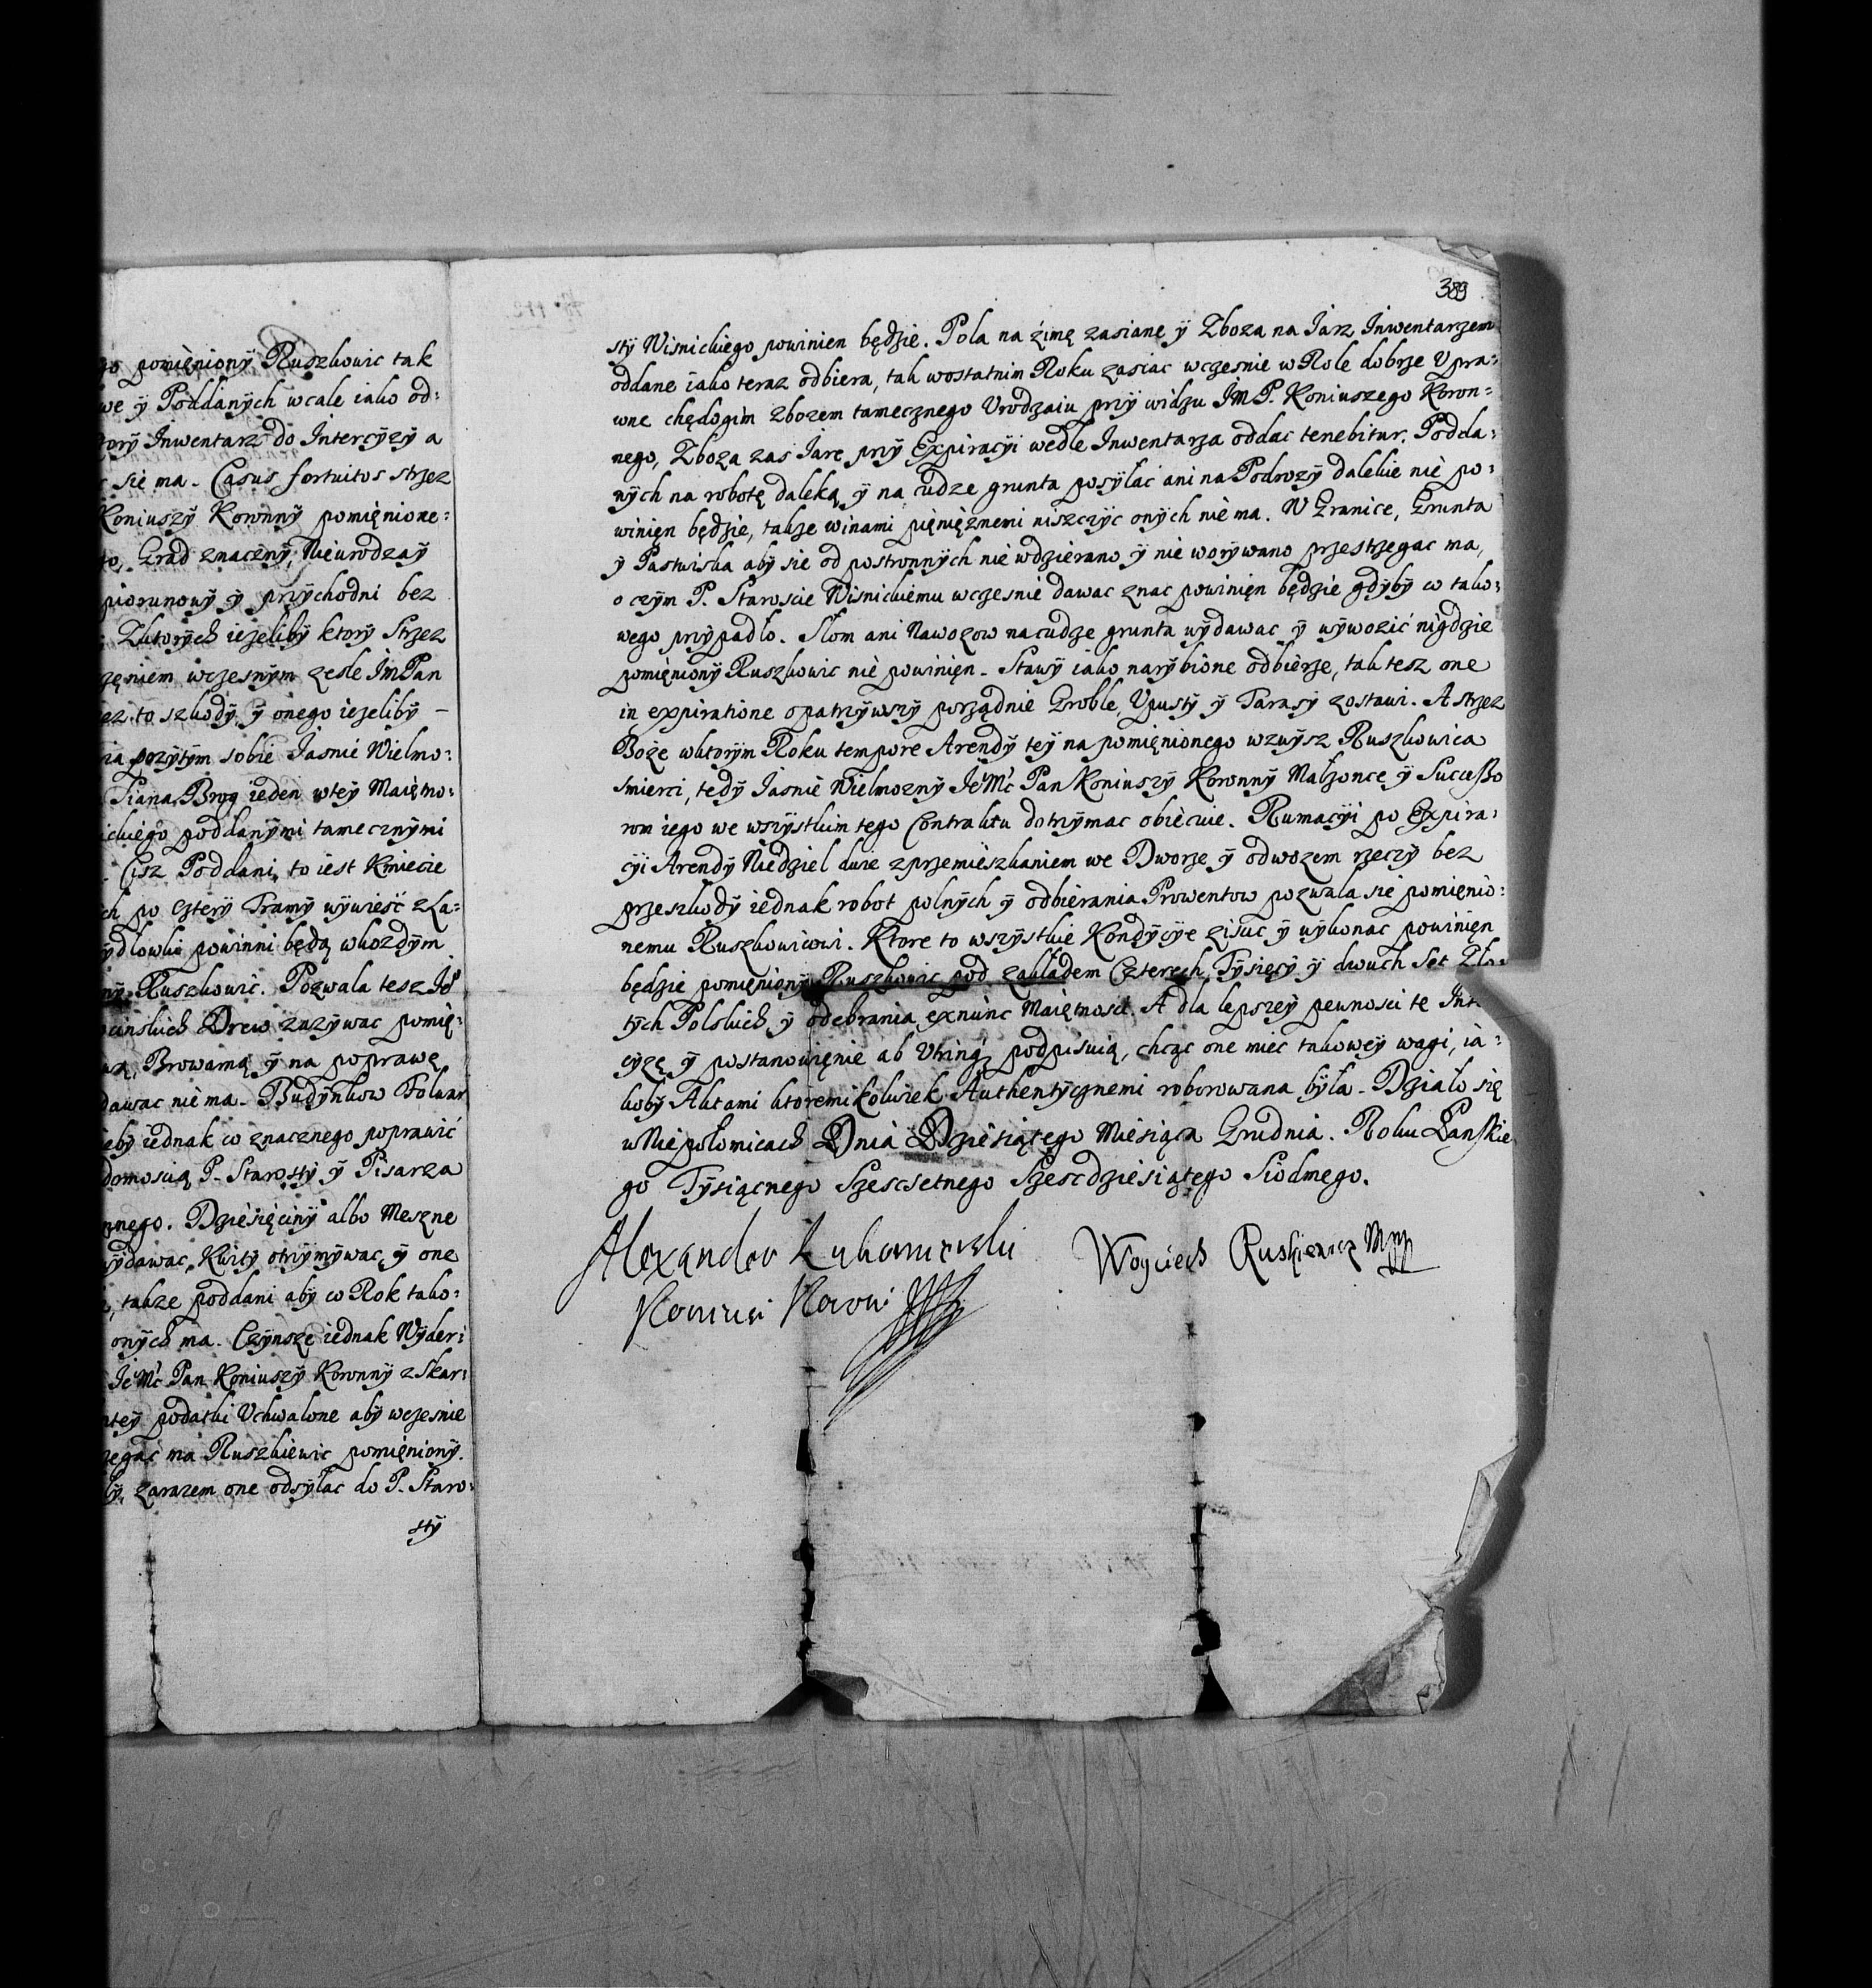 pomięniony Ruszkowic tak
we ÿ Poddanÿch wcale iako od=
Inwentarz do Intercÿzÿ a
się ma. Casus fortuitos strzez
Koniuszÿ Koronnÿ pomięnione=
Grad znacznÿ, Nieurodzaÿ
piorunowÿ ÿ przÿchodni bez
Zktorÿch ieżelibÿ ktorÿ Strzez
wczesnÿm zesle JmPan
to szkodÿ ÿ onego ieżelibÿ –
pozÿtÿm sobie Jasnie Wielmo=
Siana Brog ieden wteÿ Maiętno=
poddanÿmi tamecznÿmi
Cisz Poddani, to iest Kmiecie
po czterÿ Tramÿ wÿwieść zLa=
powinni będą wkozdÿm
Ruszkowic. Pozwala tesz Je
Drew zazÿwac pomię=
Browarną ÿ na poprawę
dawac nie ma. Budÿnkow Folwar
iednak co znacznego poprawić
P. Starostÿ ÿ Pisarza
Dziesięcinÿ albo Meszne
wÿdawac, Kwitÿ otrzÿmÿwac ÿ one
takze poddani abÿ co Rok tako=
onÿch ma. Czÿnsze iednak Wÿder=
JeMć Pan Koniuszÿ Koronnÿ z Skar=
podatki Uchwalone abÿ wczesnie
ma Ruszkiewic pomięnionÿ.
zarazem one odsÿłac do P. Staro=
stÿ
389
stÿ Wisnickiego powinien będzie. Pola na zimę zasiane ÿ Zboza na Jarz Inwentarzem
oddane iako teraz odbiera, tak wostatnim Roku zasiac wczesnie w Role dobrze Upra=
wne chędogim zbozem tamecznego Urodzaiu przÿ widzu JM P. Koniuszego Koron=
nego, Zboza zas Jare przÿ Expiracÿi wedle Inwentarza oddac tenebitur. Podda=
nÿch na robotę daleką ÿ na cudze grunta posÿłac ani na Podrozÿ dalekie nie po=
winięn będzie, takze winami pięnięznemi niszczÿc onÿch nie ma. W Granice, Grunta
ÿ Pastwiska abÿ się od postronnÿch nie wdzierano ÿ nie worÿwano przestrzegac ma,
o czÿm P. Staroscie Wisnickiemu wczesnie dawac znac powinięn będzie gdÿbÿ co tako=
wego przÿpadło. Słom ani Nawozow na cudze grunta wÿdawac ÿ wÿwozić nigdzie
pomięnionÿ Ruszkowic nie powinięn. Stawÿ iako narÿbione odbierze, tak tesz one
in expiratione opatrzÿwszÿ porządnie Groble, Upustÿ ÿ Tarasÿ zostawi. A strzez
Boze wktorÿm Roku tempore Arendÿ teÿ na pomięnionego wzwÿsz Ruszkowica
smierci, tedÿ Jasnie Wielmoznÿ JeMć Pan Koniuszÿ Koronnÿ Małzonce ÿ Succeßo
rom iego we wszÿstkim tego Contraktu dotrzÿmac obiecuie. Rumacÿi po Expira=
cÿi Arendÿ Niedziel dwie z przemieszkaniem we Dworze ÿ odwozem rzeczÿ bez
przeszkodÿ iednak robot polnÿch ÿ odbierania Prowentow pozwala się pomięnio=
nemu Ruszkowicowi. Ktore to wszÿstkie Kondÿcÿe ziscic ÿ wÿkonac powinięn
będzie pomięnionÿ Ruszkowic pod zakładem Czterech Tÿsięcÿ ÿ dwuch Set Zło=
tÿch Polskich ÿ odebrania exnunc Maiętnosci. A dla lepszeÿ pewnosci te Int
cÿzę ÿ postanowięnie ab Utrinq podpisuią, chcąc one miec takoweÿ wagi, ia=
kobÿ Aktami ktoremikolwiek Authentÿcznemi roborowana bÿła. Działo się
w Niepołomicach Dnia Dziesiątego Miesiąca Grudnia. Roku Panskie
go Tÿsiącnego Szescsetnego Szescdziesiątego Siodmego.
Alexander Lubomirski
Koniuszi Koron
Woyciech Ruskiewicz Mpp